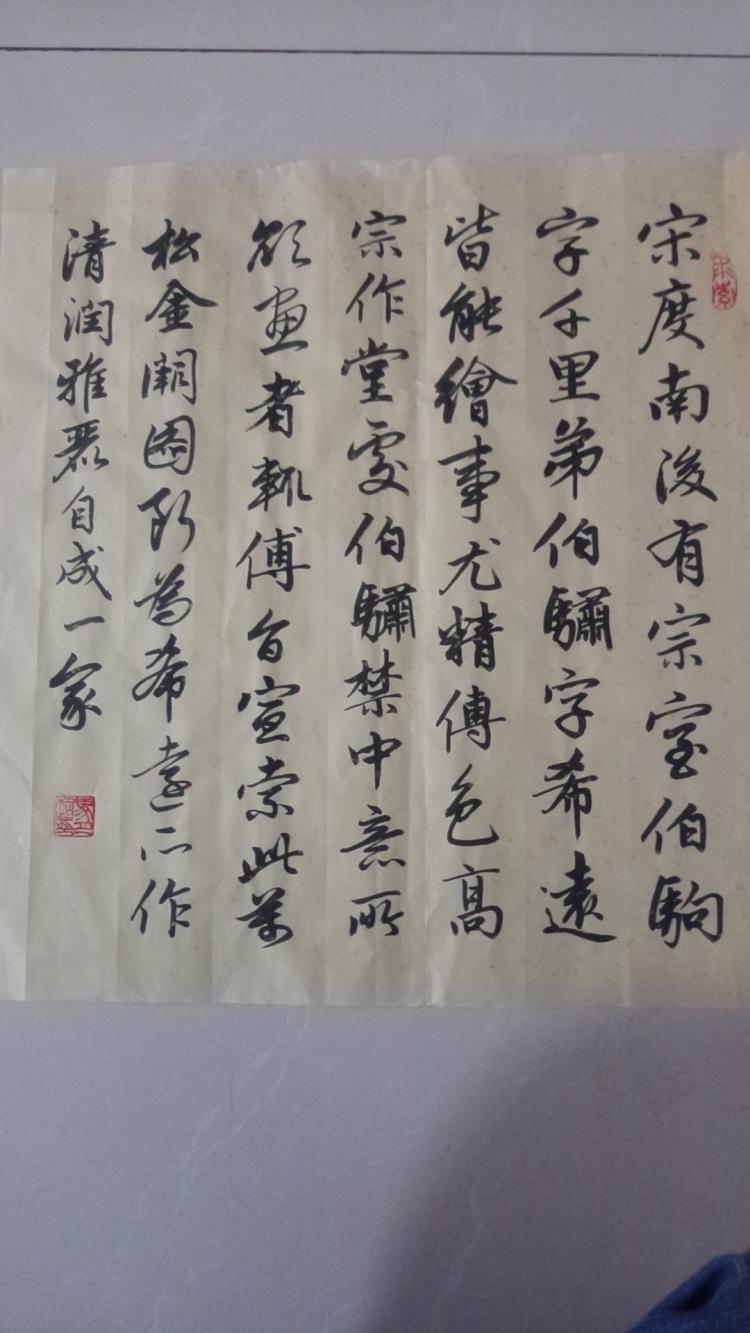 宋度南後有宗室伯駒
字千里弟伯驌字希遠
皆能繪事尤精傅色高
宗作堂處伯驌禁中意所
欲畫者輒傅旨宣索此萬
松金闕圖所為希遠所作
清潤雅麗自成一家